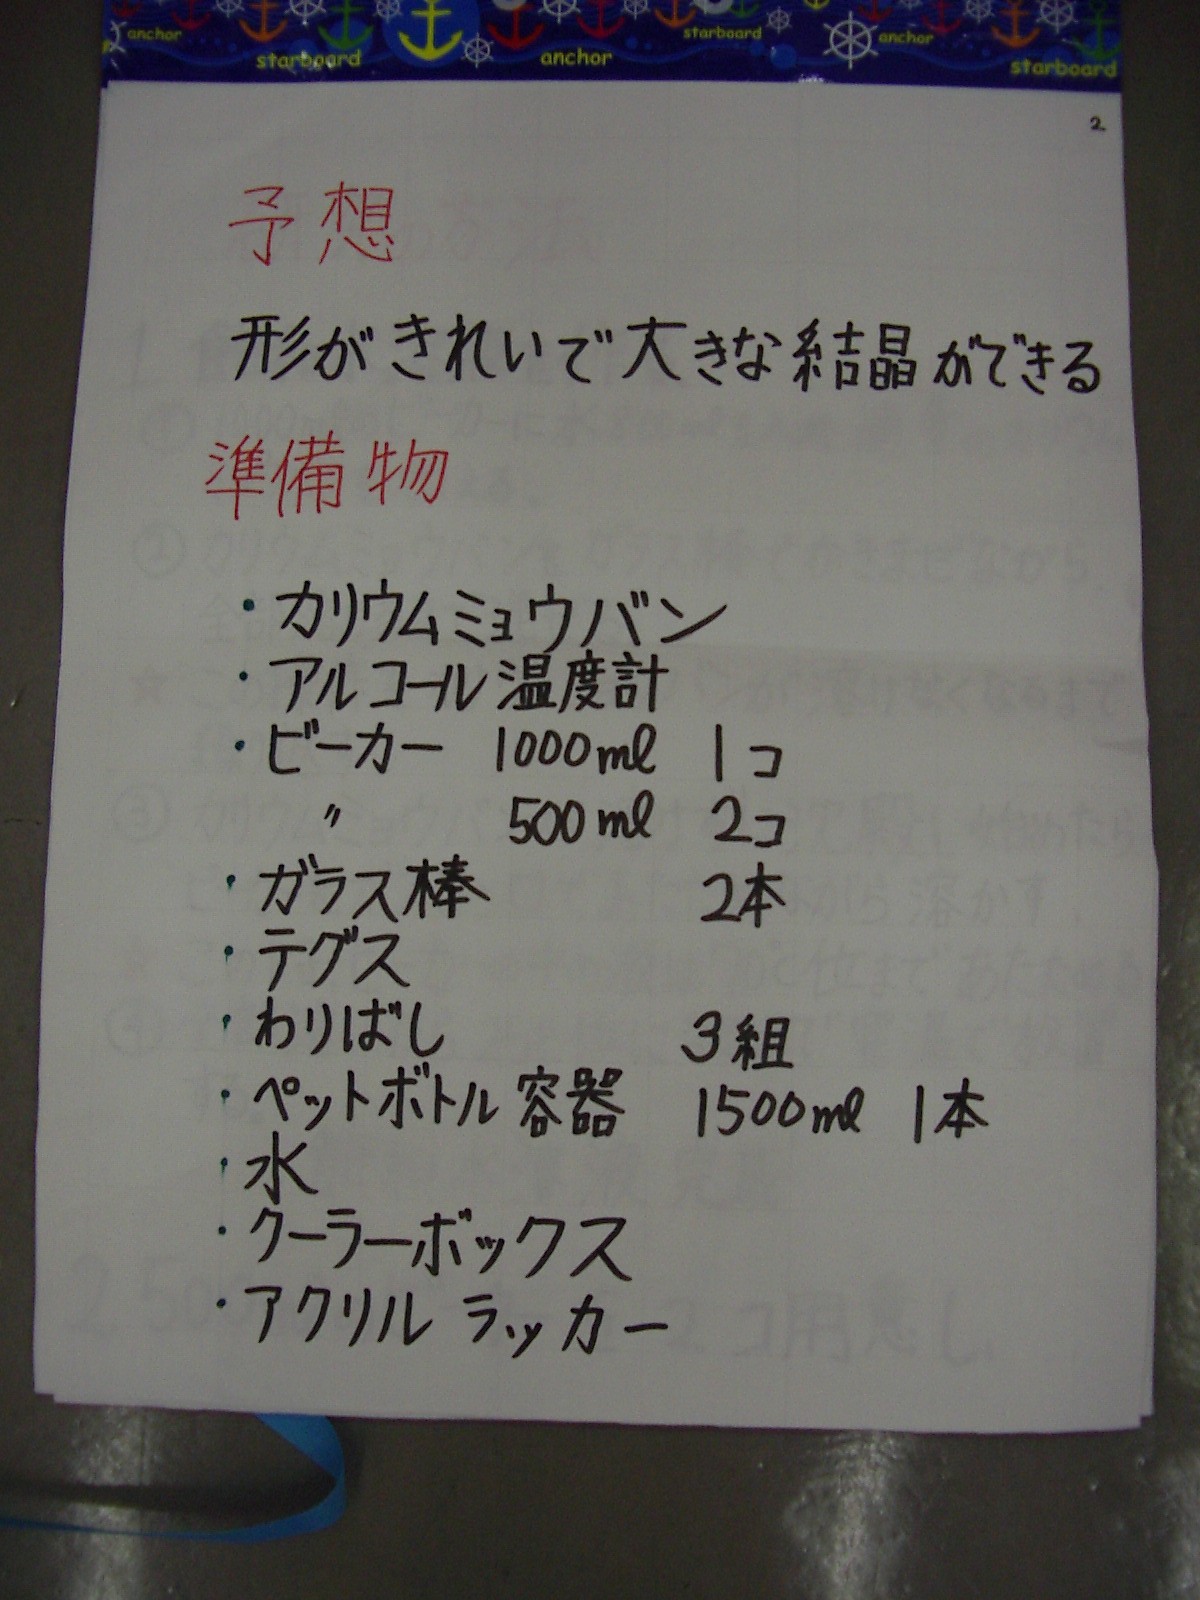 anchor starboard anchor starboard anchor starboard
2
予想
形がきれいで大きな結晶ができる
準備物
・カリウムミョウバン
・アルコール温度計
・ビーカー 1000ml 1コ
〃 500ml 2コ
・ガラス棒 2本
・テグス
・わりばし 3組
・ペットボトル容器 1500ml 1本
・水
・クーラーボックス
・アクリルラッカー